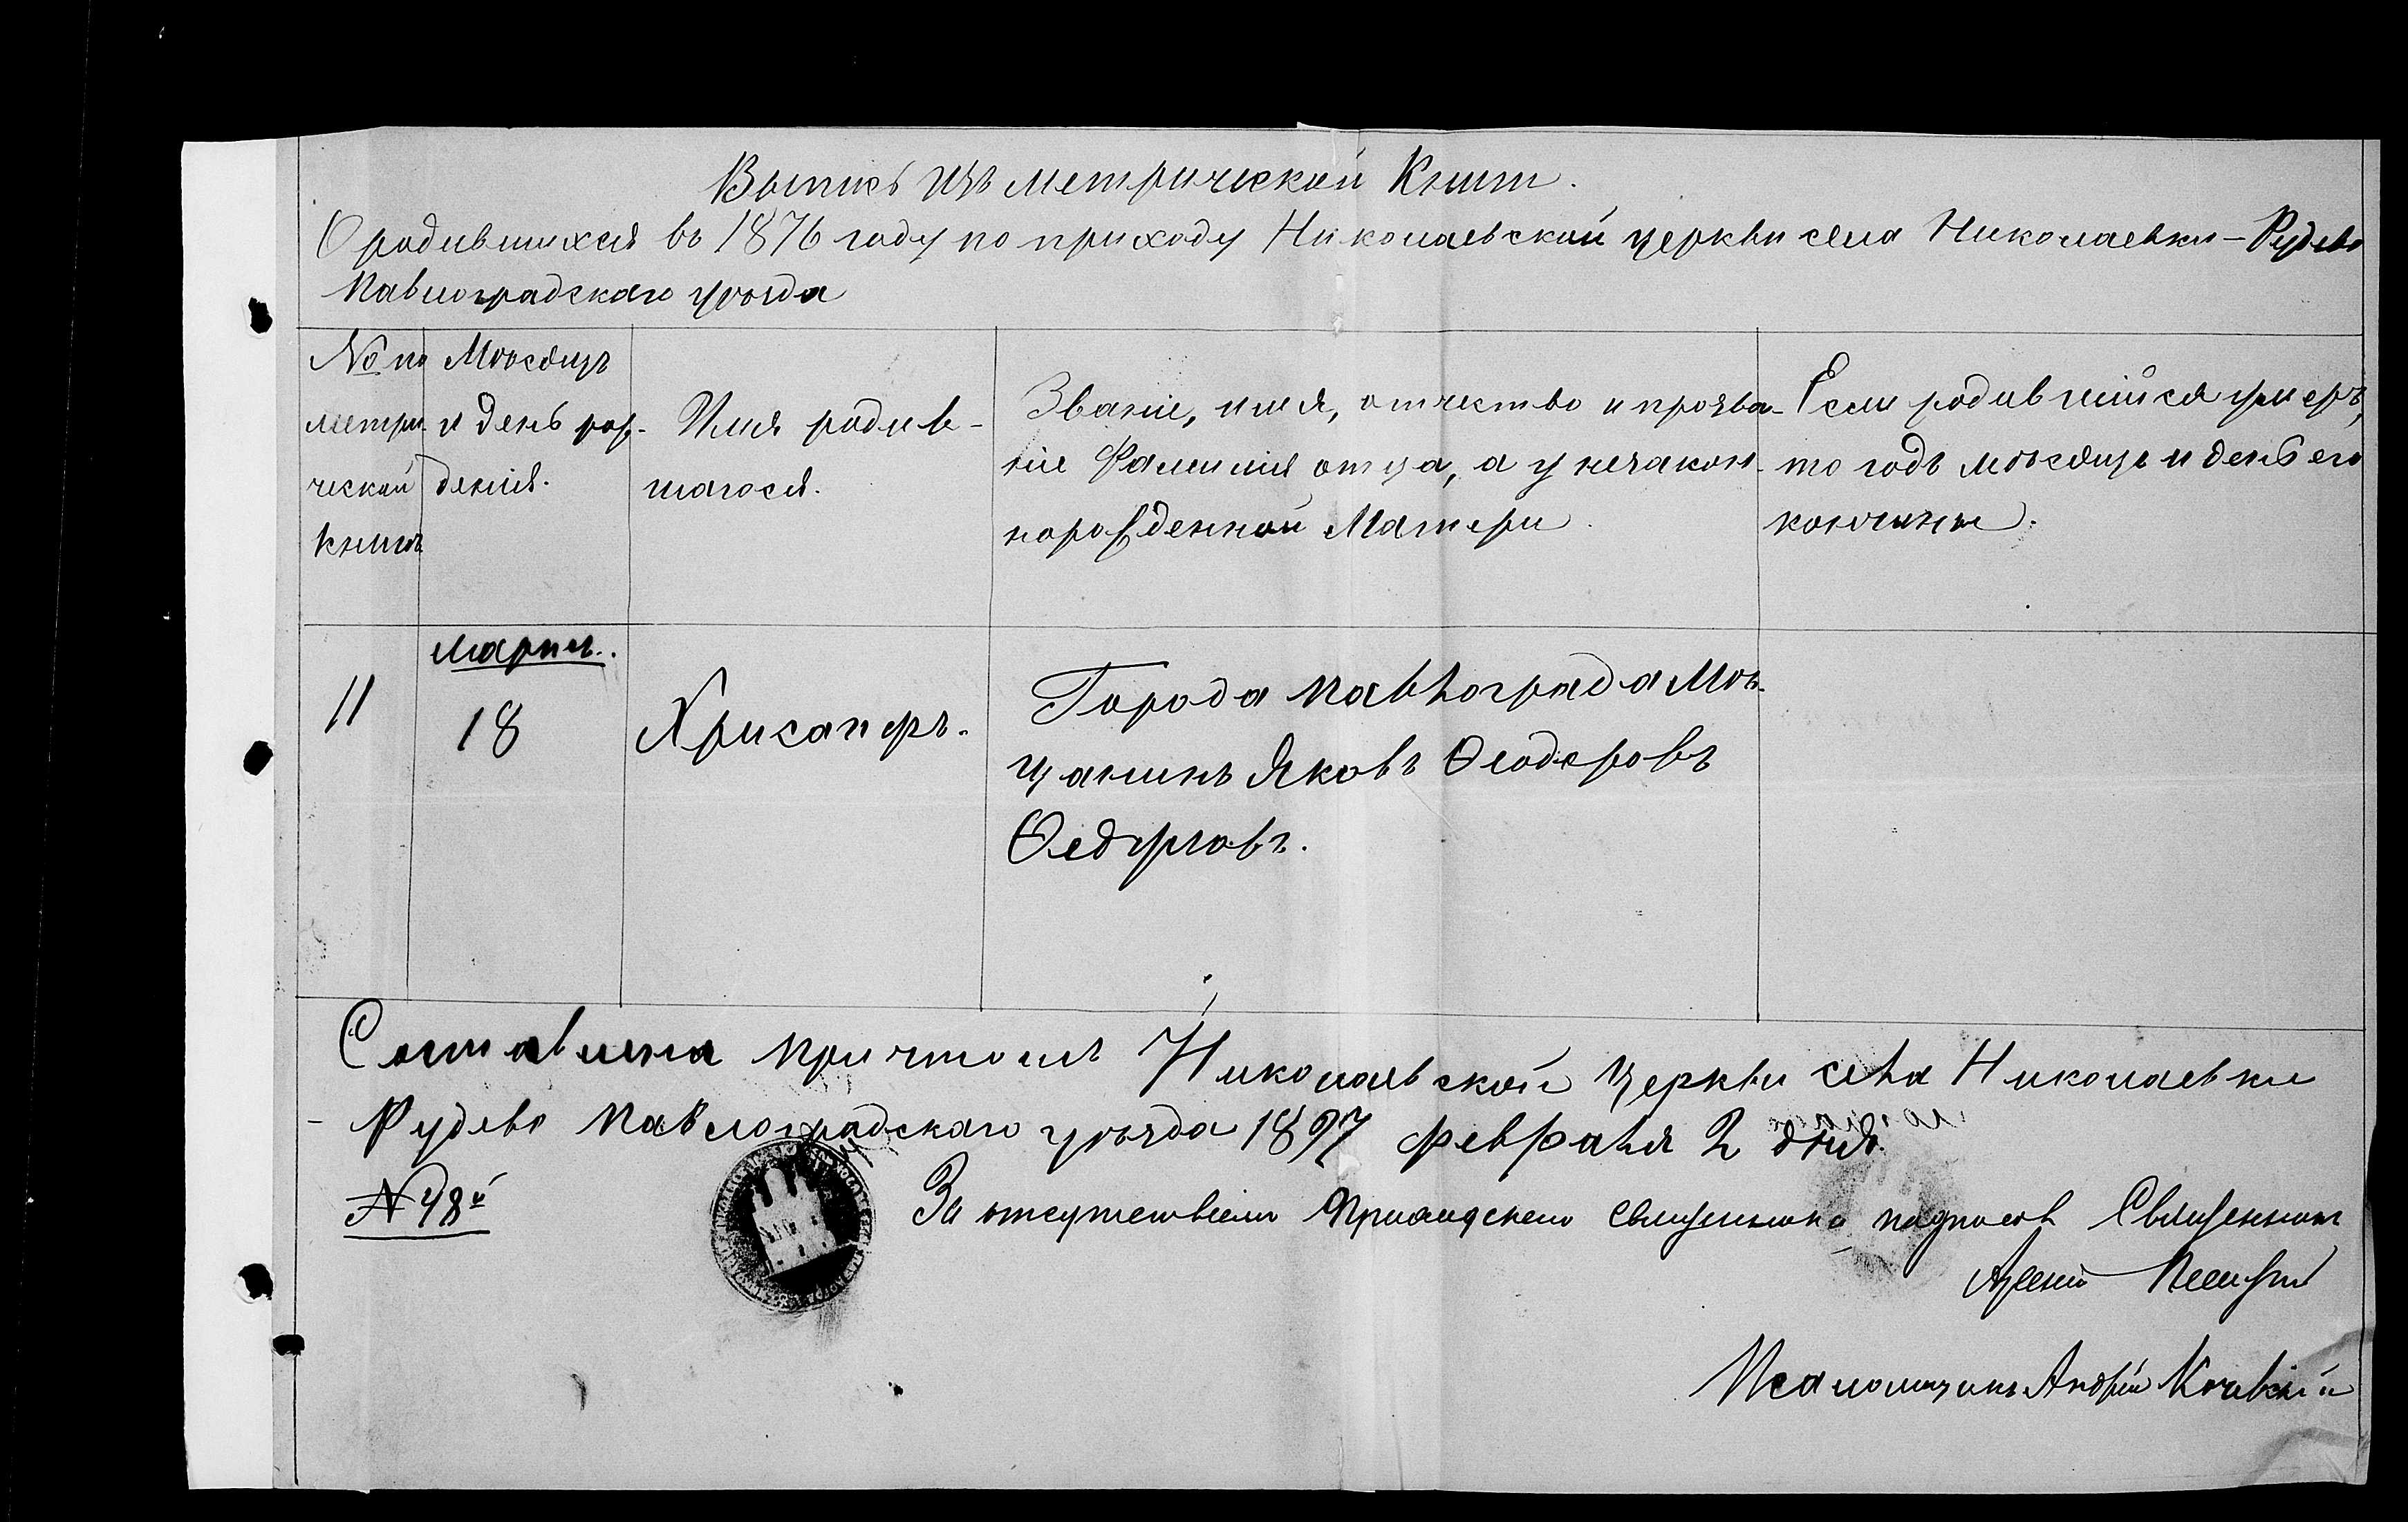 Выпись изъ метрической Книги.
О родившихся въ 1876 году по приходу Николаевской церкви села Николаевки-Рудево
Павлоградскаго уѣзда
№ по
метри
ческой
книгѣ
Мѣсяцъ
и день рож-
денія.
Имя родив-
шагося.
Званіе, имя, отчество и прозва-
ніе Фамилія отца, а у незакон-
норожденной Матери.
Если родившійся умеръ,
то годъ мѣсяцъ и день его
кончины.
11
мартъ.
18
Хрисанфъ.
Города Павлограда Мѣ-
щанинъ Яковъ Ѳеодоровъ
Ѳедоровъ.
Составлена Причтомъ Николаевской Церкви села Николаевки
- Рудево Павлоградскаго уѣзда 1897 февраля 2 дня.
№ 48й
За отсутствіемъ Приходскаго священника Священникъ
Псаломщикъ Андрей